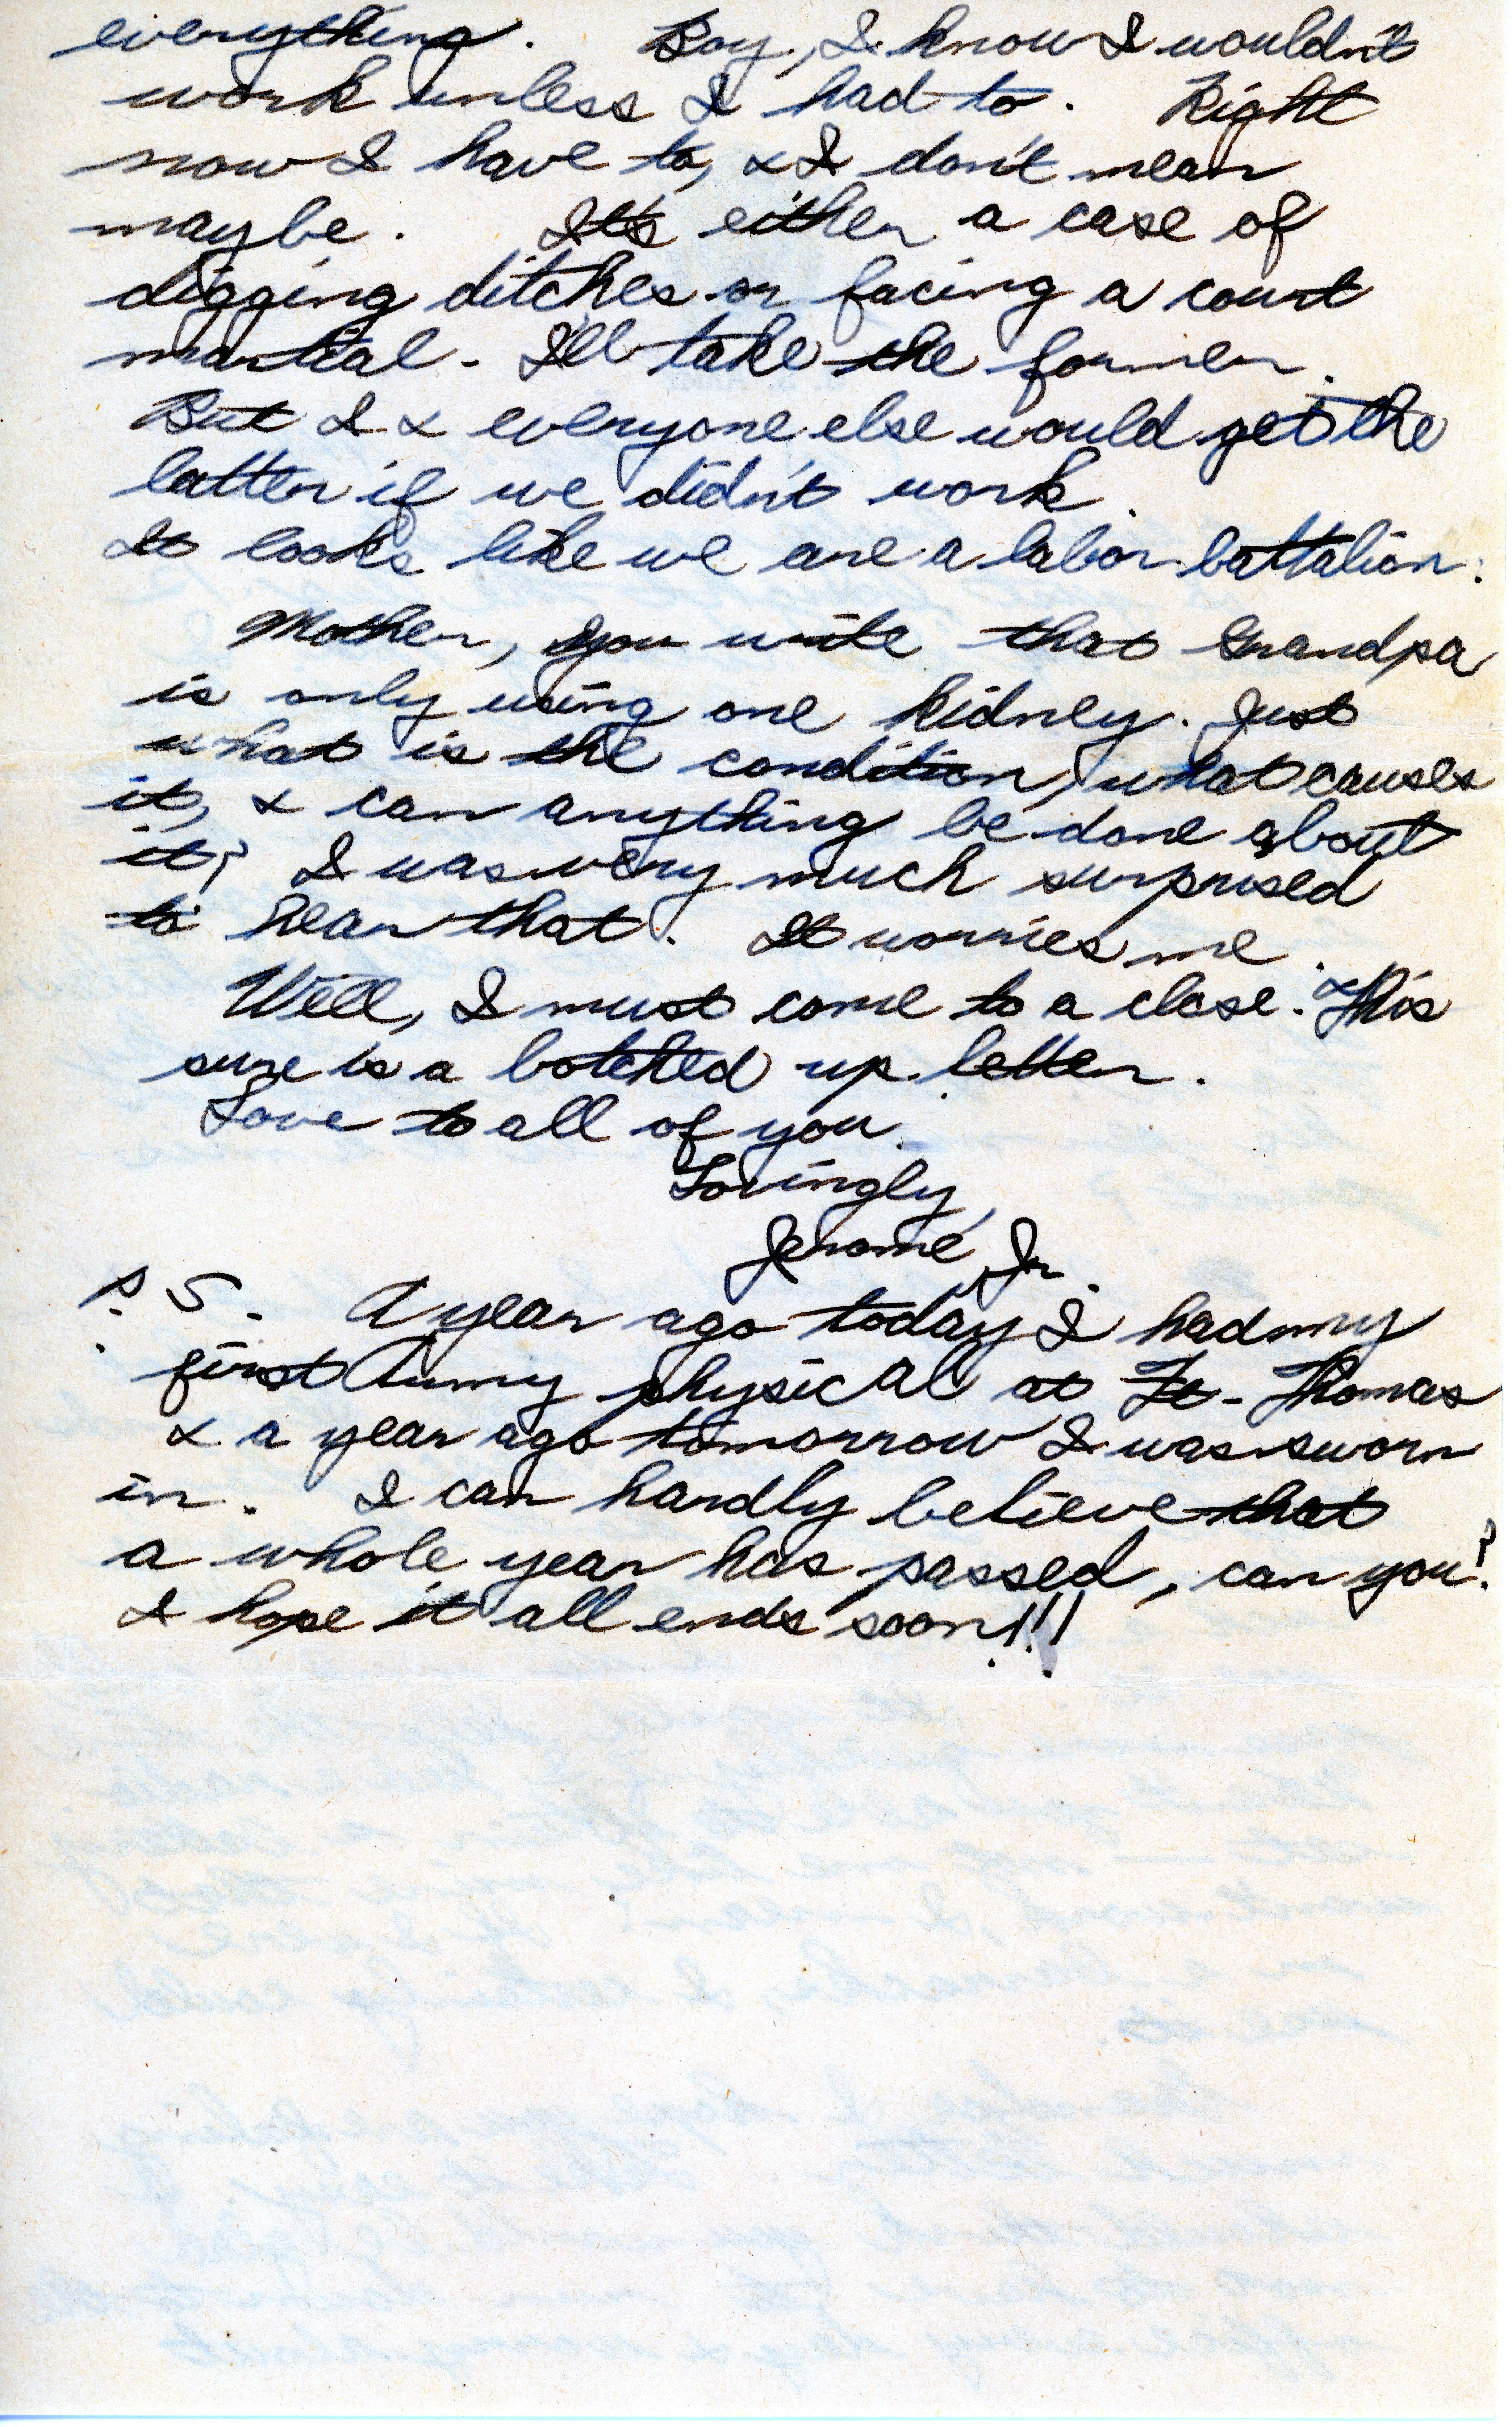 everything. Boy, I know I wouldn't
work unless I had to. Right
now I have to, & I don't mean
maybe. It's either a case of
digging ditches or facing a court
martial. I'll take the former.
But I & everyone else would get the
latter if we didn't work.
It looks like we are a labor battalion.
Mother, you write that Grandpa
is only using one kidney. Just
what is the condition, what causes
it, & can anything be done about
it? I was very much surprised
to hear that. It worries me.
Well, I must come to a close. This
sure is a botched up letter.
Love to all of you.
Lovingly,
Jerome, Jr.
P.S. A year ago today I had my
first Army physical at Ft. Thomas
& a year ago tomorrow I was sworn
in. I can hardly believe that
a whole year has passed, can you?
I hope it all ends soon!!!